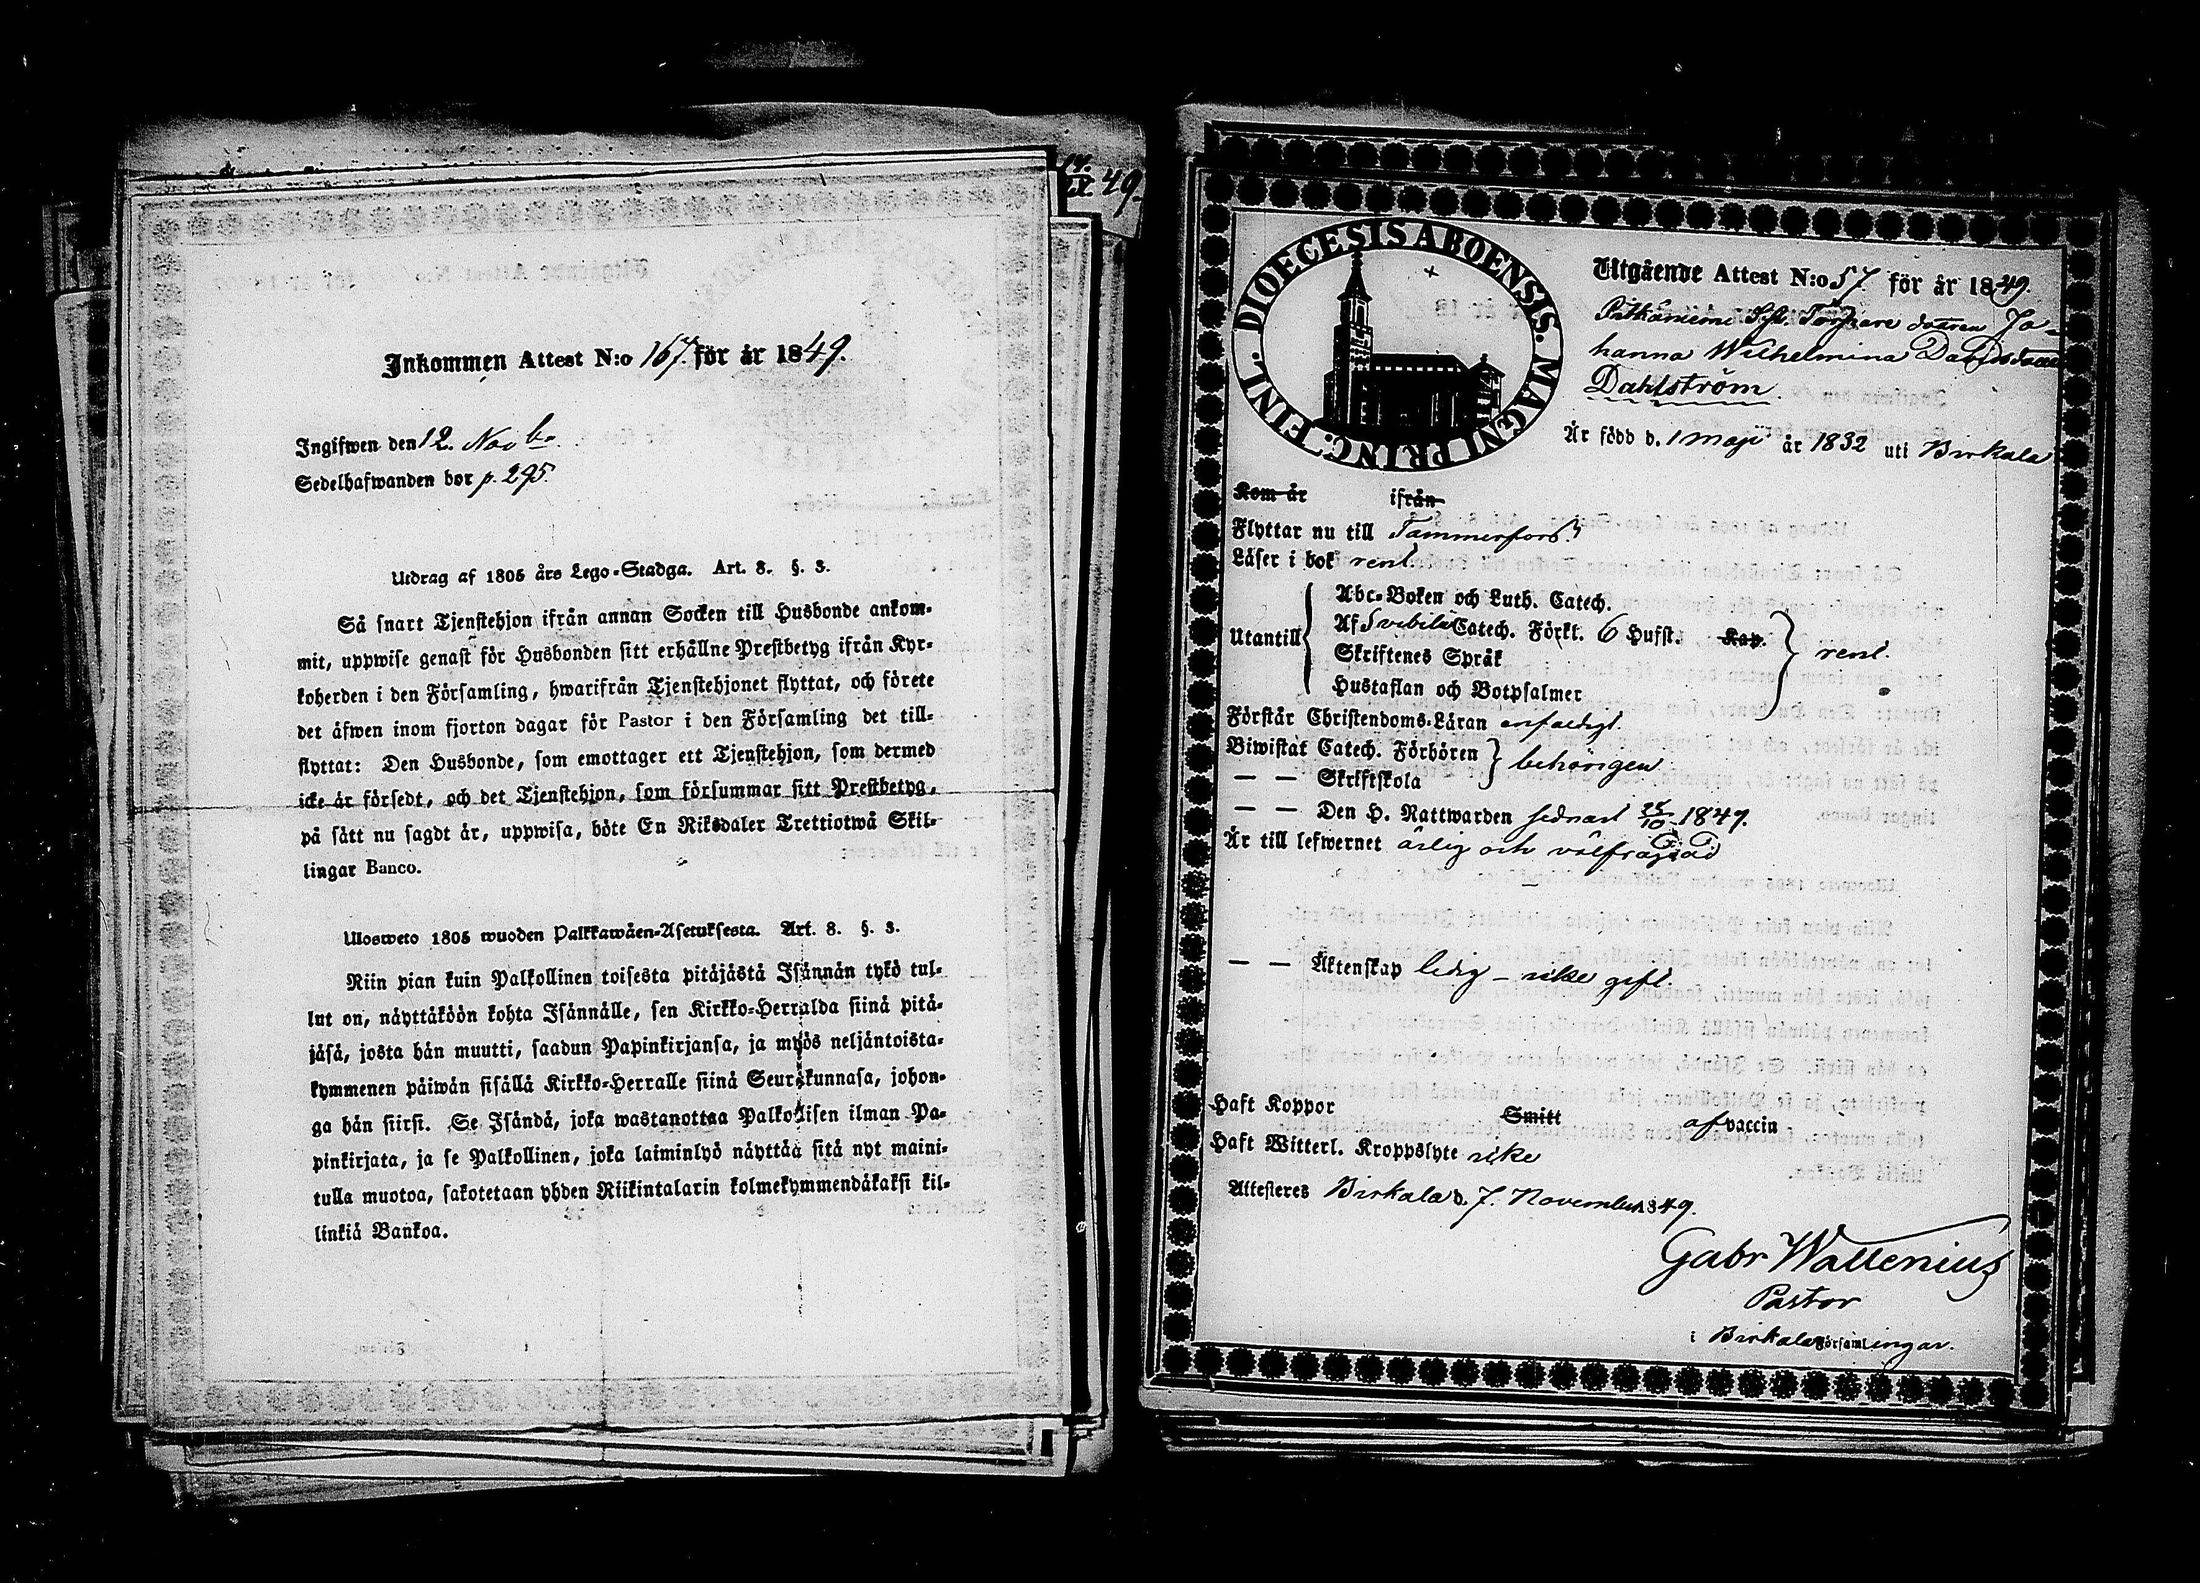 Inkommen Attest N:o 167. för år 1849.
Ingifwen den 12. Novbr.
Sedelhafwanden bor p. 295.
Utdrag af 1805 års Lego-Stadga. Art. 8. §. 3.
Så snart Tjenstehjon ifrån annan Socken till Husbonde ankom-
mit, uppwise genast för Husbonden sitt erhållne Prestbetyg ifrån Kyr-
koherden i den Församling, hwarifrån Tjenstehjonet flyttat, och förete
det äfwen inom fjorton dagar för Pastor i den Församling det till-
flyttat: Den Husbonde, som emottager ett Tjenstehjon, som dermed
icke är försedt, och det Tjenstehjon, som försummar sitt Prestbetyg,
på sätt nu sagdt är, uppwisa, böte En Riksdaler Trettiotwå Skil-
lingar Banco.
Ulosweto 1805 wuoden Palkkawäen-Asetuksesta. Art. 8. §. 3.
Niin pian kuin Palkollinen toisesta pitäjästä Isännän tykö tul-
lut on, näyttäköön kohta Isännälle, sen Kirkko-Herralda siinä pitä-
jäsä, josta hän muutti, saadun Papinkirjansa, ja myös neljäntoista-
kymmenen päiwän sisällä Kirkko-Herralle siinä Seurakunnasa, johon-
ga hän siirsi. Se Isändä, joka wastanottaa Palkollisen ilman Pa-
pinkirjata, ja se Palkollinen, joka laiminlyö näyttää sitä nyt maini-
tulla muotoa, sakotetaan yhden Riikintalarin kolmekymmendäkaksi kil-
linkiä Bankoa.
49.
DIOECESIS ABOENSIS. MAGNI PRINC. FINL.
Utgående Attest N:o 57 för år 1849.
Pitkäniemi Torpare dottren Jo-
hanna Wilhelmina Davidsdotter
Dahlström.
Är född d. 1 Maji år 1832 uti Birkala
Kom år ifrån
Flyttar nu till Tammerfors
Läser i bok rent.
Utantill
Abc-Boken och Luth. Catech.
Af Svebilii Catech. Förkl. 6 Hufst. Kap.
Skriftenes Språk
Hustaflan och Botpsalmer
rent.
Förstår Christendoms-Läran enfaldigt.
Biwistat Catech. Förhören
— — Skriftskola
behörigen
— — Den H. Nattwarden sednast 25/10 1849.
Är till lefwernet ärlig och välfrägdad
— — Äktenskap ledig – icke gift.
Haft Koppor Smitt af vaccin
Haft Witterl. Kroppslyte icke
Attesteres Birkala d. 7. November 1849.
Gabr Wallenius
Pastor
i Birkala Församlingar.